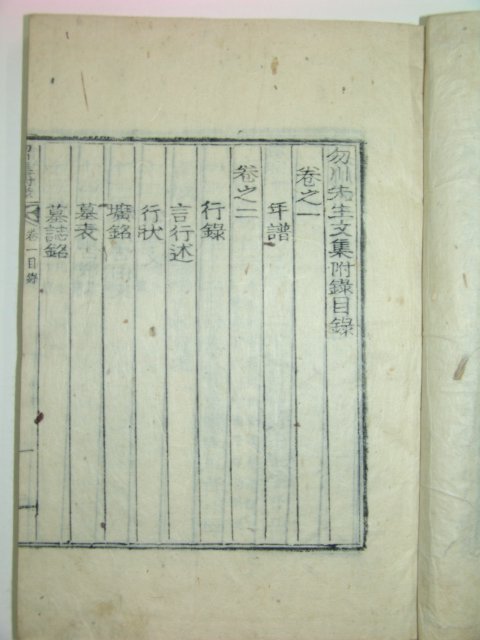 勿川先生文集附錄目錄
卷之一
年譜
卷之二
行錄
言行述
行狀
壙銘
墓表
墓誌銘
卷一目錄